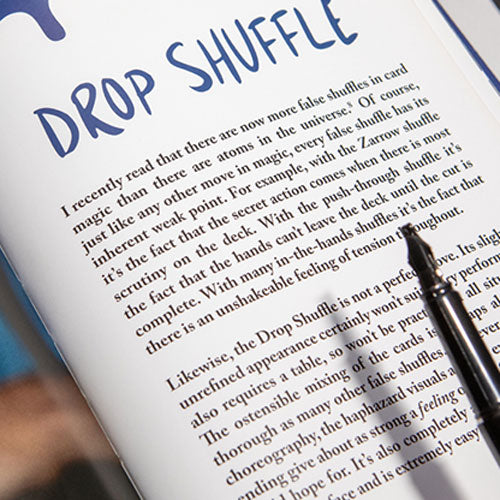 DROP SHUFFLE
I recently read that there are now more false shuffles in card
magic than there are atoms in the universe.⁸ Of course,
just like any other move in magic, every false shuffle has its
inherent weak point. For example, with the Zarrow shuffle
it's the fact that the secret action comes when there is most
scrutiny on the deck. With the push-through shuffle it's
the fact that the hands can't leave the deck until the cut is
complete. With many in-the-hands shuffles it's the fact that
there is an unshakeable feeling of tension throughout.
Likewise, the Drop Shuffle is not a perfect move. Its slight
unrefined appearance certainly won't suit every perform
also requires a table, so won't be all
The ostensible mixing of the cards is
thorough as many other false shuffles.
choreography, the haphazard visuals
ending give about as strong a feeling
hope for. It's also completely
and is extremely easy